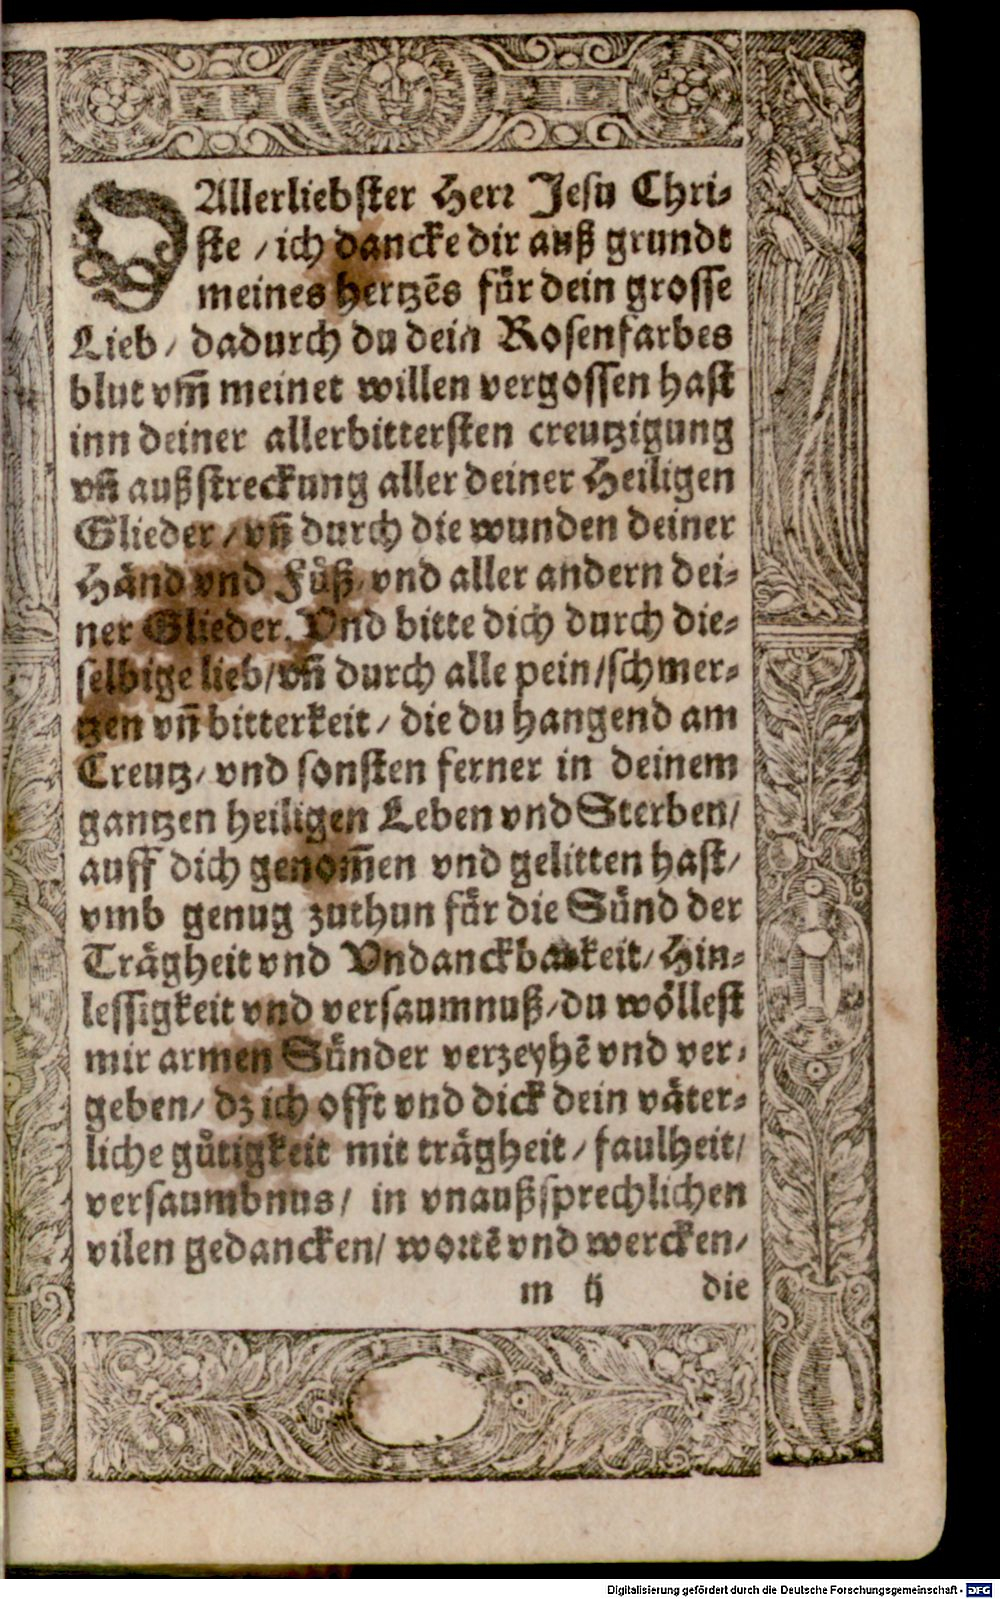 O Allerliebster Herr Jesu Chri⸗
ste / ich dancke dir auß grundt
meines hertzẽs für dein grosse
Lieb / dadurch du dein Rosenfarbes
blut vm̃ meinet willen vergossen hast
inn deiner allerbittersten creutzigung
vñ außstreckung aller deiner Heiligen
Glieder / vñ durch die wunden deiner
Händ vnd Füß / vnd aller andern dei⸗
ner Glieder. Vnd bitte dich durch die⸗
selbige lieb / vñ durch alle pein / schmer⸗
tzen vñ bitterkeit / die du hangend am
Creutz / vnd sonsten ferner in deinem
gantzen heiligen Leben vnd Sterben /
auff dich genom̃en vnd gelitten hast /
vmb genug zuthun für die Sünd der
Trägheit vnd Vndanckbarkeit / Hin⸗
lessigkeit vnd versaumnuß / du wöllest
mir armen Sünder verzeyhẽ vnd ver⸗
geben / dz ich offt vnd dick dein väter⸗
liche gůtigkeit mit trägheit / faulheit /
versaumbnus / in vnaußsprechlichen
vilen gedancken / wortẽ vnd wercken /
m ij die
Digitalisierung gefördert durch die Deutsche Forschungsgemeinschaft - DFG